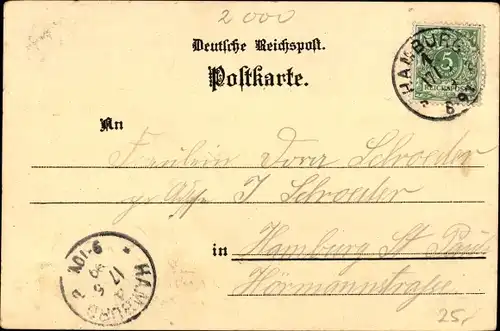 2000
Deutsche Reichspost.
Postkarte.
HAMBURG
1
17/5
8-9V
5
REICHSPOST
An
Fräulein Dora Schroeder
J Schroeder
in Hamburg St Pauli
Hörmannstraße
HAMBURG 2
17 5 99
9-10V
25,-